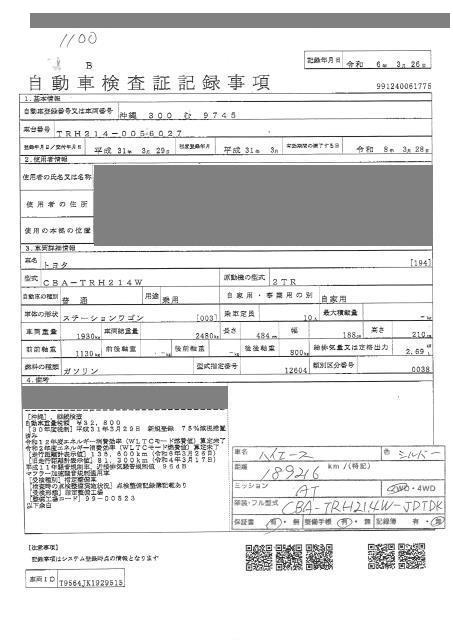 1100
B
記録年月日 令和 6年 3月 26日
自動車検査証記録事項
991240061775
1.基本情報
自動車登録番号又は車両番号 沖縄 300 む 9745
車台番号 TRH214-0056027
登録年月日/交付年月日 平成 31年 3月 29日 初度登録年月 平成 31年 3月 有効期間の満了する日 令和 8年 3月 28日
2.使用者情報
使用者の氏名又は名称
使用者の住所
使用の本拠の位置
3.車両詳細情報
車名 トヨタ [194]
型式 CBA-TRH214W 原動機の型式 2TR
自動車の種別 普通 用途 乗用 自家用・事業用の別 自家用
車体の形状 ステーションワゴン [003] 乗車定員 10人 最大積載量 -kg
車両重量 1930kg 車両総重量 2480kg 長さ 484cm 幅 188cm 高さ 210cm
前前軸重 1130kg 前後軸重 -kg 後前軸重 -kg 後後軸重 800kg 総排気量又は定格出力 2.69L
燃料の種類 ガソリン 型式指定番号 12604 類別区分番号 0038
4.備考
[沖縄], 継続検査
自動車重量税額 ¥32,800
[30年度税制] 平成31年3月29日 新規登録 75%減税措置
済み
令和12年度エネルギー消費効率(WLTCモード燃費値)算定未了
令和2年度エネルギー消費効率(WLTCモード燃費値)算定未了
[走行距離計表示値] 135,600km(令和6年3月26日)
[旧走行距離計表示値] 81,300km(令和4年3月17日)
平成11年騒音規制車、近接排気騒音規制値 95dB
マフラー加速騒音規制適用車
[受検種別] 指定整備車
[検査時の点検整備実施状況] 点検整備記録簿記載あり
[受検形態] 指定整備工場
[整備工場コード] 99-00523
以下余白
車名 ハイエース 色 シルバー
距離 189216 km/(特記)
ミッション AT 2WD・4WD
架装・フル型式 CBA-TRH214W-JDTDK
保証書 有・無 整備手帳 有・無 記録簿 有・無
[注意事項]
記録事項はシステム登録時点の情報となります
車両ID T9564JK1929515